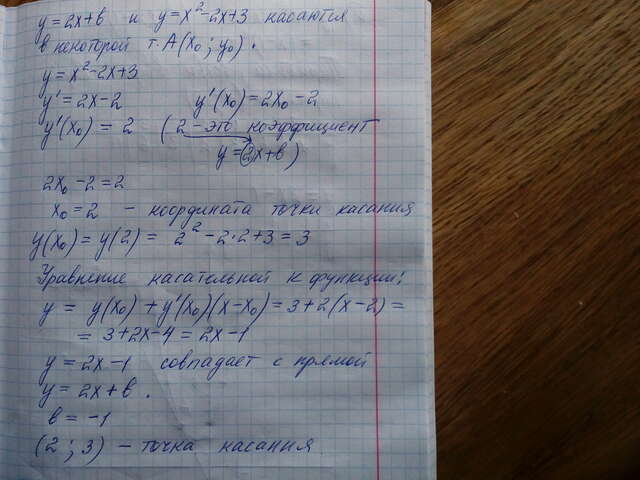 y=2x+в и y=x²-2x+3 касаются
в некоторой т.А(x₀; y₀).
y=x²-2x+3
y'=2x-2 y'(x₀)=2x₀-2
y'(x₀)=2 (2-это коэффициент
y=2x+в)
2x₀-2=2
x₀=2 - координата точки касания
y(x₀)=y(2)= 2²-2·2+3=3
Уравнение касательной к функции:
y= y(x₀)+y'(x₀)(x-x₀)=3+2(x-2)=
= 3+2x-4=2x-1
y=2x-1 совпадает с прямой
y=2x+в.
в=-1
(2; 3) - точка касания